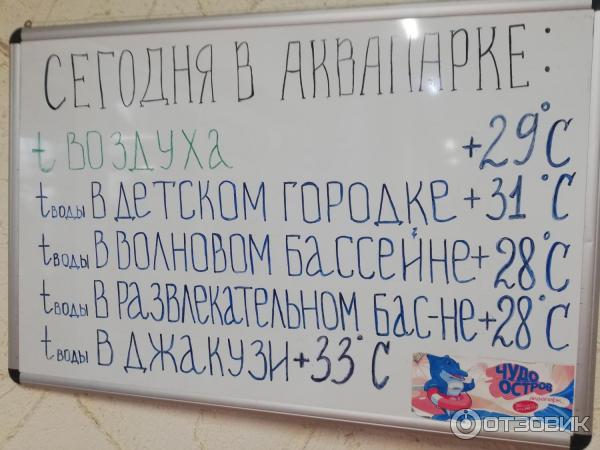 СЕГОДНЯ В АКВАПАРКЕ:
t ВОЗДУХА +29°C
tводы В ДЕТСКОМ ГОРОДКЕ +31°C
tводы В ВОЛНОВОМ БАССЕЙНЕ +28°C
tводы В РАЗВЛЕКАТЕЛЬНОМ БАС-НЕ +28°C
tводы В ДЖАКУЗИ +33°C
ЧУДО
ОСТРОВ
аквапарк
ОТЗОВИК